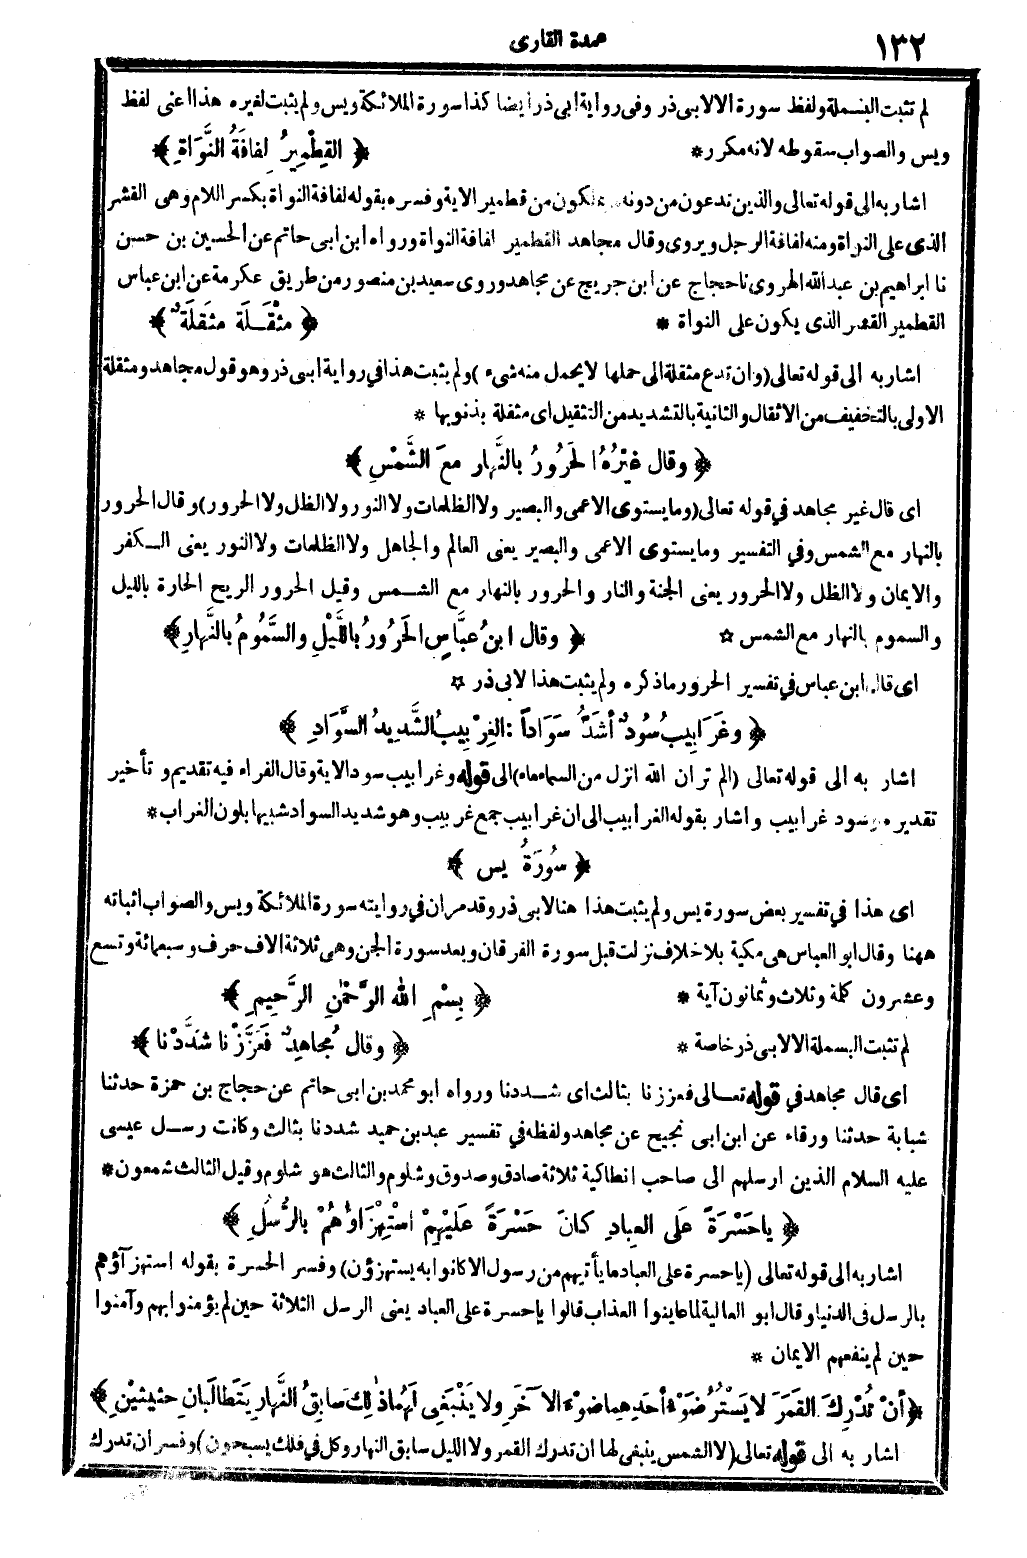 ١٣٢
عمدة القارى
لم تثبت البسملة ولفظ سورة الا لابى ذر وفى رواية ابى ذر ايضا كذا سورة الملائكة ويس ولم يثبت لغيره هذا اعنى لفظ
ويس والصواب سقوطه لانه مكرر * ﴿ القِطْمِيرُ لِفَافَةُ النَّوَاةِ ﴾
اشار به الى قوله تعالى والذين تدعون من دونه يملكون من قطمير الاية وفسره بقوله لفافة النواة بكسر اللام وهى القشر
الذى على النواة ومنه لفافة الرجل ويروى وقال مجاهد القطمير لفافة النواة ورواه ابن ابى حاتم عن الحسين بن حسن
نا ابراهيم بن عبد الله الهروى نا حجاج عن ابن جريج عن مجاهد وروى سعيد بن منصور من طريق عكرمة عن ابن عباس
القطمير القشر الذى يكون على النواة * ﴿ مثْقَـلَة مثقلَةٌ ﴾
اشار به الى قوله تعالى (وان تدع مثقلة الى حملها لا يحمل منه شىء) ولم يثبت هذا في رواية ابى ذر وهو قول مجاهد ومثقلة
الاولى بالتخفيف من الاثقال والثانية بالتشديد من التثقيل اى مثقلة بذنوبها *
﴿ وقال غيْرُهُ الحَرُورُ بالنَّهارِ معَ الشَّمْسِ ﴾
اى قال غير مجاهد في قوله تعالى (وما يستوى الاعمى والبصير ولا الظلمات ولا النور ولا الظل ولا الحرور) وقال الحرور
بالنهار مع الشمس وفي التفسير وما يستوى الاعمى والبصير يعنى العالم والجاهل ولا الظلمات ولا النور يعنى الــكفر
والايمان ولا الظل ولا الحرور يعنى الجنة والنار والحرور بالنهار مع الشــمس وقيل الحرور الريح الحارة بالليل
والسموم بالنهار مع الشمس ☆ ﴿ وقال ابنُ عبَّاسٍ الحَرُورُ باللَّيْلِ والسَّمُومُ بالنَّهارِ ﴾
اى قال ابن عباس في تفسير الحرور ما ذكره ولم يثبت هذا لابى ذر ☆
﴿ وغَرَابِيبُ سُودٌ أشَدُّ سَوَاداً : الغِرْبِيبُ الشَّدِيدُ السَّوَادِ ﴾
اشار به الى قوله تعالى (الم تر ان الله انزل من السماء ماء) الى قوله وغرابيب سود الاية وقال الفراء فيه تقديم وتأخير
تقديره وسود غرابيب واشار بقوله الغرابيب الى ان غرابيب جمع غربيب وهو شديد السواد شبيها بلون الغراب *
﴿ سُورَةُ يس ﴾
اى هذا في تفسير بعض سورة يس ولم يثبت هذا هنا لابى ذر وقد مر ان في روايته سورة الملائكة ويس والصواب اثباته
ههنا وقال ابو العباس هى مكية بلا خلاف نزلت قبل سورة الفرقان وبعد سورة الجن وهى ثلاثة الاف حرف وسبعمائة وتسع
وعشرون كلمة وثلاث وثمانون آية * ﴿ بِسْمِ اللهِ الرَّحْمٰنِ الرَّحِيمِ ﴾
لم تثبت البسملة الا لابى ذر خاصة * ﴿ وقال مُجاهِدٌ فَعَزَّزْنا شدَّدْنا ﴾
اى قال مجاهد في قوله تعــالى فعززنا بثالث اى شــددنا ورواه ابو محمد بن ابى حاتم عن حجاج بن حمزة حدثنا
شبابة حدثنا ورقاء عن ابن ابى نجيح عن مجاهد ولفظه في تفسير عبد بن حميد شددنا بثالث وكانت رســل عيسى
عليه السلام الذين ارسلهم الى صاحب انطاكية ثلاثة صادق وصدوق وشلوم والثالث هو شلوم وقيل الثالث شمعون *
﴿ ياحَسْرَةً علَى العِبادِ كانَ حَسْرَةً عَلَيْهِمْ اسْتِهْزَاؤُهُمْ بالرُّسُلِ ﴾
اشار به الى قوله تعالى (يا حسرة على العباد ما يأتيهم من رسول الا كانوا به يستهزؤن) وفسر الحسرة بقوله استهزآؤهم
بالرسل فى الدنيا وقال ابو العالية لما عاينوا العذاب قالوا يا حسرة على العباد يعنى الرسل الثلاثة حين لم يؤمنوا بهم وآمنوا
حين لم ينفعهم الايمان *
﴿ أنْ تُدْرِكَ القَمَرَ لا يَسْتُرُ ضَوْءُ أحَدِهِما ضوْءَ الآخَرِ ولا يَنْبَغِى لَهُما ذٰلِكَ سَابِقُ النَّهارِ يتَطَالَبانِ حَثيثيْنِ ﴾
اشار به الى قوله تعالى (لا الشمس ينبغى لها ان تدرك القمر ولا الليل سابق النهار وكل في فلك يسبحون) وفسر ان تدرك